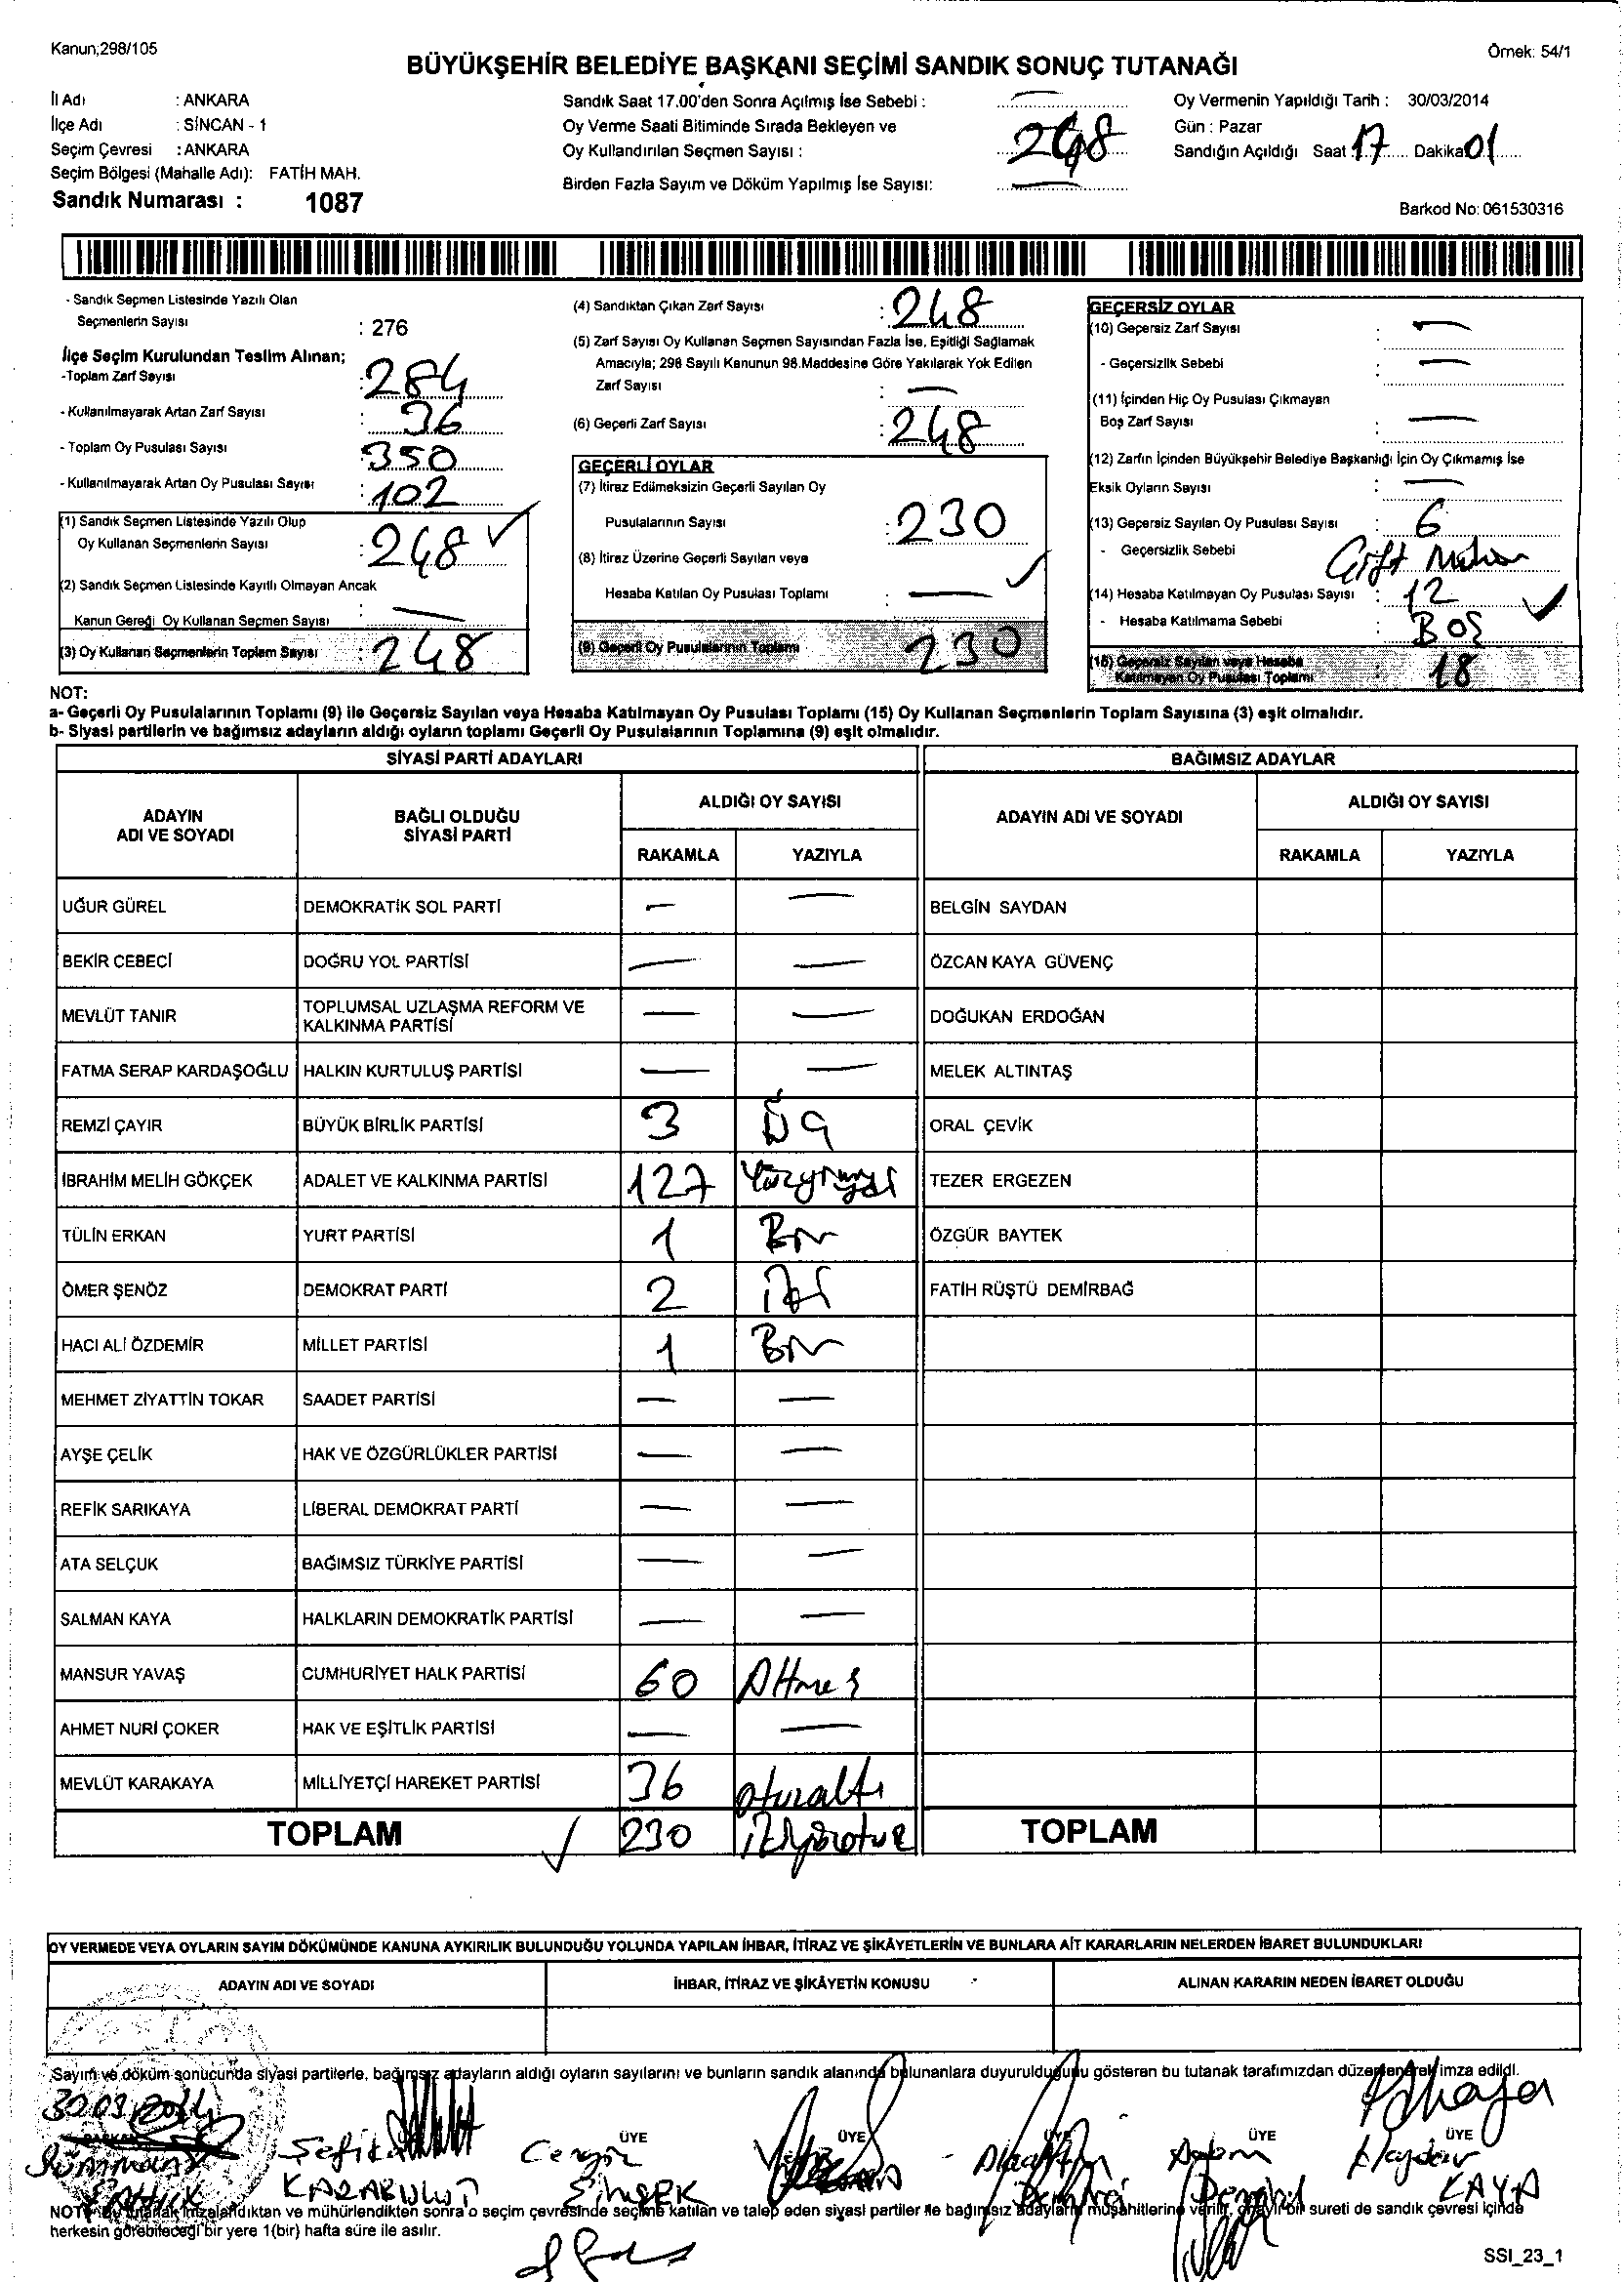 Kanun;298/105
Örnek: 54/1
BÜYÜKŞEHİR BELEDİYE BAŞKANI SEÇİMİ SANDIK SONUÇ TUTANAĞI
İl Adı : ANKARA
İlçe Adı : SİNCAN - 1
Seçim Çevresi : ANKARA
Seçim Bölgesi (Mahalle Adı): FATİH MAH.
Sandık Numarası : 1087
Sandık Saat 17.00'den Sonra Açılmış İse Sebebi : —
Oy Verme Saati Bitiminde Sırada Bekleyen ve
Oy Kullandırılan Seçmen Sayısı : 248
Birden Fazla Sayım ve Döküm Yapılmış İse Sayısı: —
Oy Vermenin Yapıldığı Tarih : 30/03/2014
Gün : Pazar
Sandığın Açıldığı Saat 17 Dakika 01
Barkod No: 061530316
- Sandık Seçmen Listesinde Yazılı Olan
Seçmenlerin Sayısı : 276
İlçe Seçim Kurulundan Teslim Alınan;
-Toplam Zarf Sayısı : 284
- Kullanılmayarak Artan Zarf Sayısı : 36
- Toplam Oy Pusulası Sayısı : 350
- Kullanılmayarak Artan Oy Pusulası Sayısı : 102
(1) Sandık Seçmen Listesinde Yazılı Olup
Oy Kullanan Seçmenlerin Sayısı : 248
(2) Sandık Seçmen Listesinde Kayıtlı Olmayan Ancak
Kanun Gereği Oy Kullanan Seçmen Sayısı : —
(3) Oy Kullanan Seçmenlerin Toplam Sayısı : 248
(4) Sandıktan Çıkan Zarf Sayısı : 248
(5) Zarf Sayısı Oy Kullanan Seçmen Sayısından Fazla İse, Eşitliği Sağlamak
Amacıyla; 298 Sayılı Kanunun 98.Maddesine Göre Yakılarak Yok Edilen
Zarf Sayısı : —
(6) Geçerli Zarf Sayısı : 248
GEÇERLİ OYLAR
(7) İtiraz Edilmeksizin Geçerli Sayılan Oy
Pusulalarının Sayısı : 230
(8) İtiraz Üzerine Geçerli Sayılan veya
Hesaba Katılan Oy Pusulası Toplamı : —
(9) Geçerli Oy Pusulalarının Toplamı 230
GEÇERSİZ OYLAR
(10) Geçersiz Zarf Sayısı : —
- Geçersizlik Sebebi : —
(11) İçinden Hiç Oy Pusulası Çıkmayan
Boş Zarf Sayısı : —
(12) Zarfın İçinden Büyükşehir Belediye Başkanlığı İçin Oy Çıkmamış İse
Eksik Oyların Sayısı : —
(13) Geçersiz Sayılan Oy Pusulası Sayısı : 6
- Geçersizlik Sebebi Çift
(14) Hesaba Katılmayan Oy Pusulası Sayısı : 12
- Hesaba Katılmama Sebebi : BOŞ
(15) Geçersiz Sayılan veya Hesaba
Katılmayan Oy Pusulası Toplamı : 18
NOT:
a- Geçerli Oy Pusulalarının Toplamı (9) ile Geçersiz Sayılan veya Hesaba Katılmayan Oy Pusulası Toplamı (15) Oy Kullanan Seçmenlerin Toplam Sayısına (3) eşit olmalıdır.
b- Siyasi partilerin ve bağımsız adayların aldığı oyların toplamı Geçerli Oy Pusulalarının Toplamına (9) eşit olmalıdır.
SİYASİ PARTİ ADAYLARI
BAĞIMSIZ ADAYLAR
ADAYIN
ADI VE SOYADI
BAĞLI OLDUĞU
SİYASİ PARTİ
ALDIĞI OY SAYISI
ADAYIN ADI VE SOYADI
ALDIĞI OY SAYISI
RAKAMLA YAZIYLA RAKAMLA YAZIYLA
UĞUR GÜREL DEMOKRATİK SOL PARTİ — — BELGİN SAYDAN
BEKİR CEBECİ DOĞRU YOL PARTİSİ — — ÖZCAN KAYA GÜVENÇ
MEVLÜT TANIR TOPLUMSAL UZLAŞMA REFORM VE
KALKINMA PARTİSİ — — DOĞUKAN ERDOĞAN
FATMA SERAP KARDAŞOĞLU HALKIN KURTULUŞ PARTİSİ — — MELEK ALTINTAŞ
REMZİ ÇAYIR BÜYÜK BİRLİK PARTİSİ 3 Üç ORAL ÇEVİK
İBRAHİM MELİH GÖKÇEK ADALET VE KALKINMA PARTİSİ 127 Yüzyirmiyedi TEZER ERGEZEN
TÜLİN ERKAN YURT PARTİSİ 1 Bir ÖZGÜR BAYTEK
ÖMER ŞENÖZ DEMOKRAT PARTİ 2 iki FATİH RÜŞTÜ DEMİRBAĞ
HACI ALİ ÖZDEMİR MİLLET PARTİSİ 1 Bir
MEHMET ZİYATTİN TOKAR SAADET PARTİSİ — —
AYŞE ÇELİK HAK VE ÖZGÜRLÜKLER PARTİSİ — —
REFİK SARIKAYA LİBERAL DEMOKRAT PARTİ — —
ATA SELÇUK BAĞIMSIZ TÜRKİYE PARTİSİ — —
SALMAN KAYA HALKLARIN DEMOKRATİK PARTİSİ — —
MANSUR YAVAŞ CUMHURİYET HALK PARTİSİ 60 Altmış
AHMET NURİ ÇOKER HAK VE EŞİTLİK PARTİSİ — —
MEVLÜT KARAKAYA MİLLİYETÇİ HAREKET PARTİSİ 36 otuzaltı
TOPLAM 230 ikiyüzotuz TOPLAM
OY VERMEDE VEYA OYLARIN SAYIM DÖKÜMÜNDE KANUNA AYKIRILIK BULUNDUĞU YOLUNDA YAPILAN İHBAR, İTİRAZ VE ŞİKÂYETLERİN VE BUNLARA AİT KARARLARIN NELERDEN İBARET BULUNDUKLARI
ADAYIN ADI VE SOYADI İHBAR, İTİRAZ VE ŞİKÂYETİN KONUSU ALINAN KARARIN NEDEN İBARET OLDUĞU
Sayım ve döküm sonucunda siyasi partilerle, bağımsız adayların aldığı oyların sayılarını ve bunların sandık alanında bulunanlara duyurulduğunu gösteren bu tutanak tarafımızdan düzenlenerek imza edildi.
30.03.2014
ÜYE ÜYE ÜYE ÜYE ÜYE
Şefika Cengiz Adem Haydar
KARABULUT ŞİMŞEK KAYA
NOT: Bu tutanak imzalandıktan ve mühürlendikten sonra o seçim çevresinde seçime katılan ve talep eden siyasi partiler ile bağımsız adayların müşahitlerine verilir, onaylı bir sureti de sandık çevresi içinde
herkesin görebileceği bir yere 1(bir) hafta süre ile asılır.
SSI_23_1